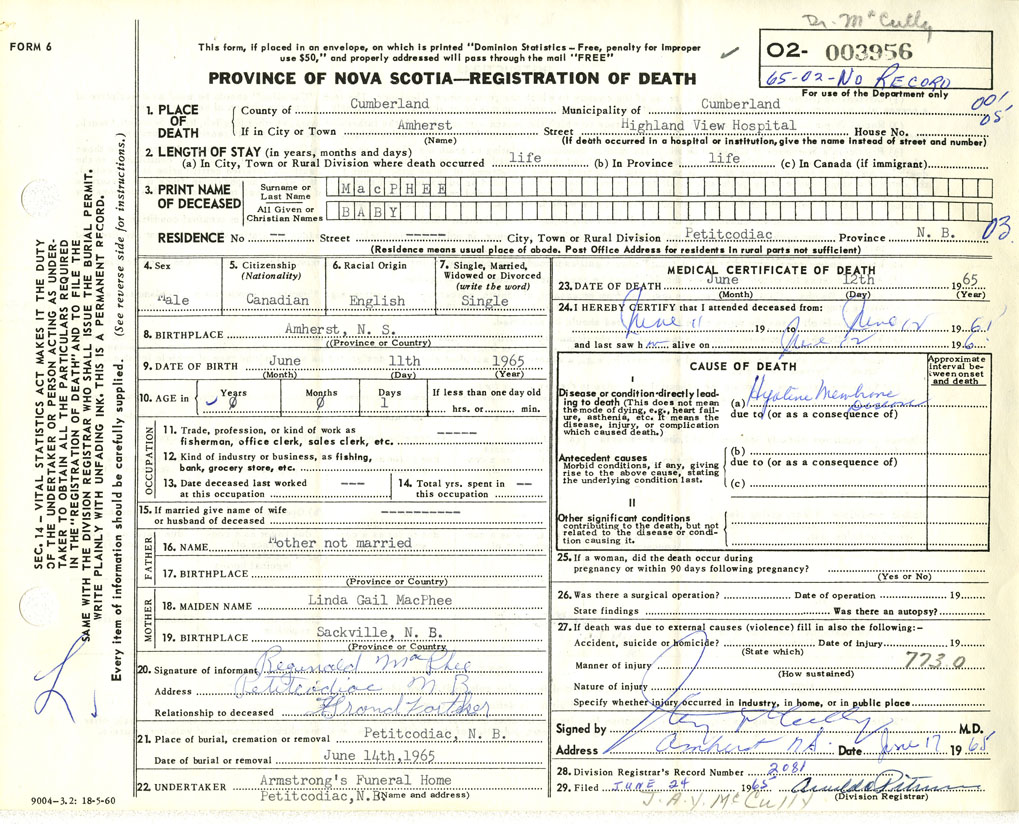 Dr. McCully
FORM 6
This form, if placed in an envelope, on which is printed "Dominion Statistics – Free, penalty for improper
use $50," and properly addressed will pass through the mail "FREE"
02- 003956
65-02-No RECORD
For use of the Department only
PROVINCE OF NOVA SCOTIA—REGISTRATION OF DEATH
SEC. 14 – VITAL STATISTICS ACT MAKES IT THE DUTY
OF THE UNDERTAKER OR PERSON ACTING AS UNDER-
TAKER TO OBTAIN ALL THE PARTICULARS REQUIRED
IN THE "REGISTRATION OF DEATH" AND TO FILE THE
SAME WITH THE DIVISION REGISTRAR WHO SHALL ISSUE THE BURIAL PERMIT.
WRITE PLAINLY WITH UNFADING INK. THIS IS A PERMANENT RECORD.
Every item of information should be carefully supplied. (See reverse side for instructions.)
1. PLACE OF DEATH
County of Cumberland Municipality of Cumberland
If in City or Town Amherst Street Highland View Hospital House No.
(Name) (If death occurred in a hospital or institution, give the name instead of street and number)
2. LENGTH OF STAY (in years, months and days)
(a) In City, Town or Rural Division where death occurred life (b) In Province life (c) In Canada (if immigrant)
3. PRINT NAME OF DECEASED
Surname or Last Name MacPHEE
All Given or Christian Names BABY
RESIDENCE No -- Street ----- City, Town or Rural Division Petitcodiac Province N. B. 03
(Residence means usual place of abode. Post Office Address for residents in rural parts not sufficient)
4. Sex Male
5. Citizenship (Nationality) Canadian
6. Racial Origin English
7. Single, Married, Widowed or Divorced (write the word) Single
8. BIRTHPLACE Amherst, N. S.
((Province or Country)
9. DATE OF BIRTH June 11th 1965
(Month) (Day) (Year)
10. AGE in Years 0 Months 0 Days 1 If less than one day old
hrs. or min.
OCCUPATION
11. Trade, profession, or kind of work as
fisherman, office clerk, sales clerk, etc. -----
12. Kind of industry or business, as fishing,
bank, grocery store, etc.
13. Date deceased last worked
at this occupation ---
14. Total yrs. spent in
this occupation --
15. If married give name of wife
or husband of deceased ----------
FATHER
16. NAME Mother not married
17. BIRTHPLACE
(Province or Country)
MOTHER
18. MAIDEN NAME Linda Gail MacPhee
19. BIRTHPLACE Sackville, N. B.
(Province or Country)
20. Signature of informant Reginald MacPhee
Address Petitcodiac N B
Relationship to deceased Grand Father
21. Place of burial, cremation or removal Petitcodiac, N. B.
Date of burial or removal June 14th,1965
22. UNDERTAKER Armstrong's Funeral Home
Petitcodiac,N.B. (Name and address)
9004-3.2: 18-5-60
MEDICAL CERTIFICATE OF DEATH
23. DATE OF DEATH June 12th 1965
(Month) (Day) (Year)
24. I HEREBY CERTIFY that I attended deceased from:
June 11 19 to June 12 196
and last saw h alive on June 12 196
CAUSE OF DEATH
Approximate interval between onset and death
I
Disease or condition directly lead-
ing to death (This does not mean
the mode of dying, e.g., heart fail-
ure, asthenia, etc. It means the
disease, injury, or complication
which caused death.)
(a) Hyaline Membrane
due to (or as a consequence of)
Antecedent causes
Morbid conditions, if any, giving
rise to the above cause, stating
the underlying condition last.
(b)
due to (or as a consequence of)
(c)
II
Other significant conditions
contributing to the death, but not
related to the disease or condi-
tion causing it.
25. If a woman, did the death occur during
pregnancy or within 90 days following pregnancy?
(Yes or No)
26. Was there a surgical operation? Date of operation 19
State findings Was there an autopsy?
27. If death was due to external causes (violence) fill in also the following:-
Accident, suicide or homicide? Date of injury 19
(State which)
Manner of injury 773.0
(How sustained)
Nature of injury
Specify whether injury occurred in industry, in home, or in public place
Signed by M.D.
Address Amherst N.S. Date June 17 1965
28. Division Registrar's Record Number 2081
29. Filed JUNE 24 1965
(Division Registrar)
J. A. Y. McCULLY